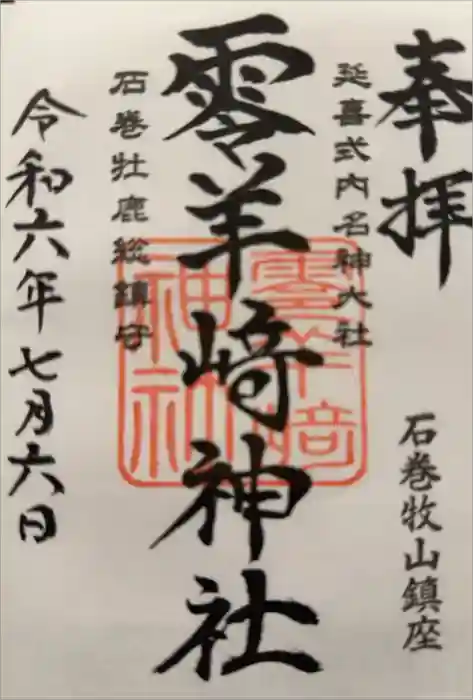 奉拝
石巻牧山鎮座
延喜式内名神大社
零羊崎神社
石巻牡鹿総鎮守
令和六年七月六日
零羊崎
神社